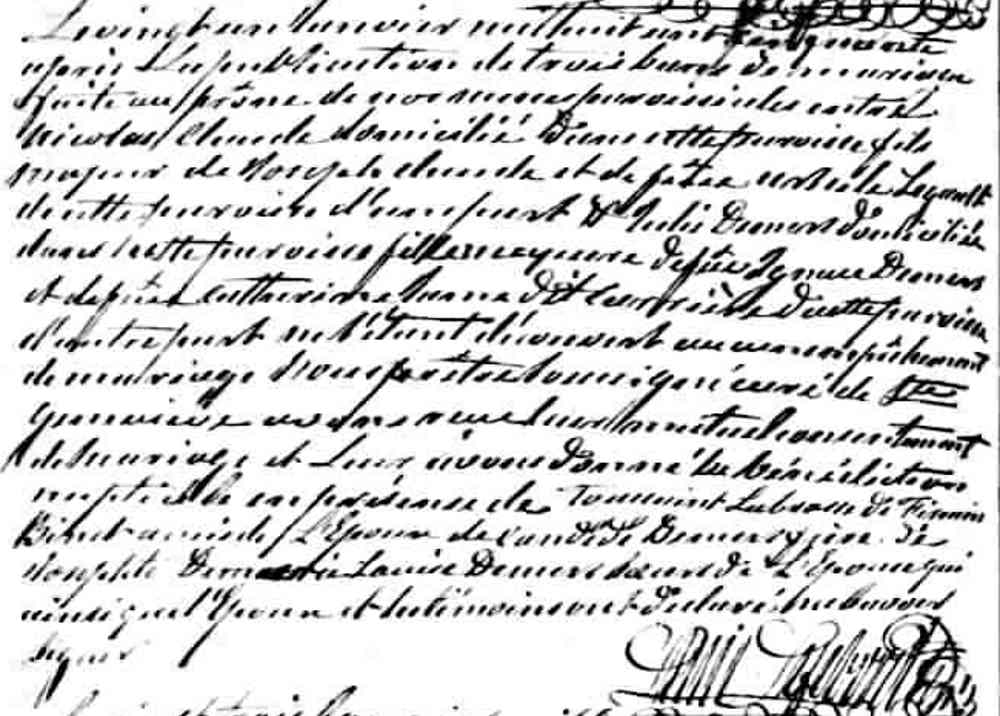 Le vingt un Janvier mil huit cent cinquante
après la publication de trois bans de mariage
faite au prône de nos messes paroissiales entre
Nicolas Claude domicilié dans cette paroisse fils
majeur de Joseph Claude et de feue Ursule Legault
de cette paroisse d'une part & Julie Demers domiciliée
dans cette paroisse fille mayeure de feu Ignace Demers
et de feue Catherine dit de cette paroisse
d'autre part ne s'étant découvert aucun empêchement
de mariage Nous prêtre soussigné curé de Ste
Geneviève avons reçu leur mutuel consentement
de mariage et leur avons donné la bénédiction
nuptiale en présence de Toussaint Labrosse de Firmin
Binet ami de l'Epoux de Demers père de
Demers Louise Demers soeurs de l'Epouse qui
ainsi que l'Epoux et les témoins ont déclaré ne savoir
signer